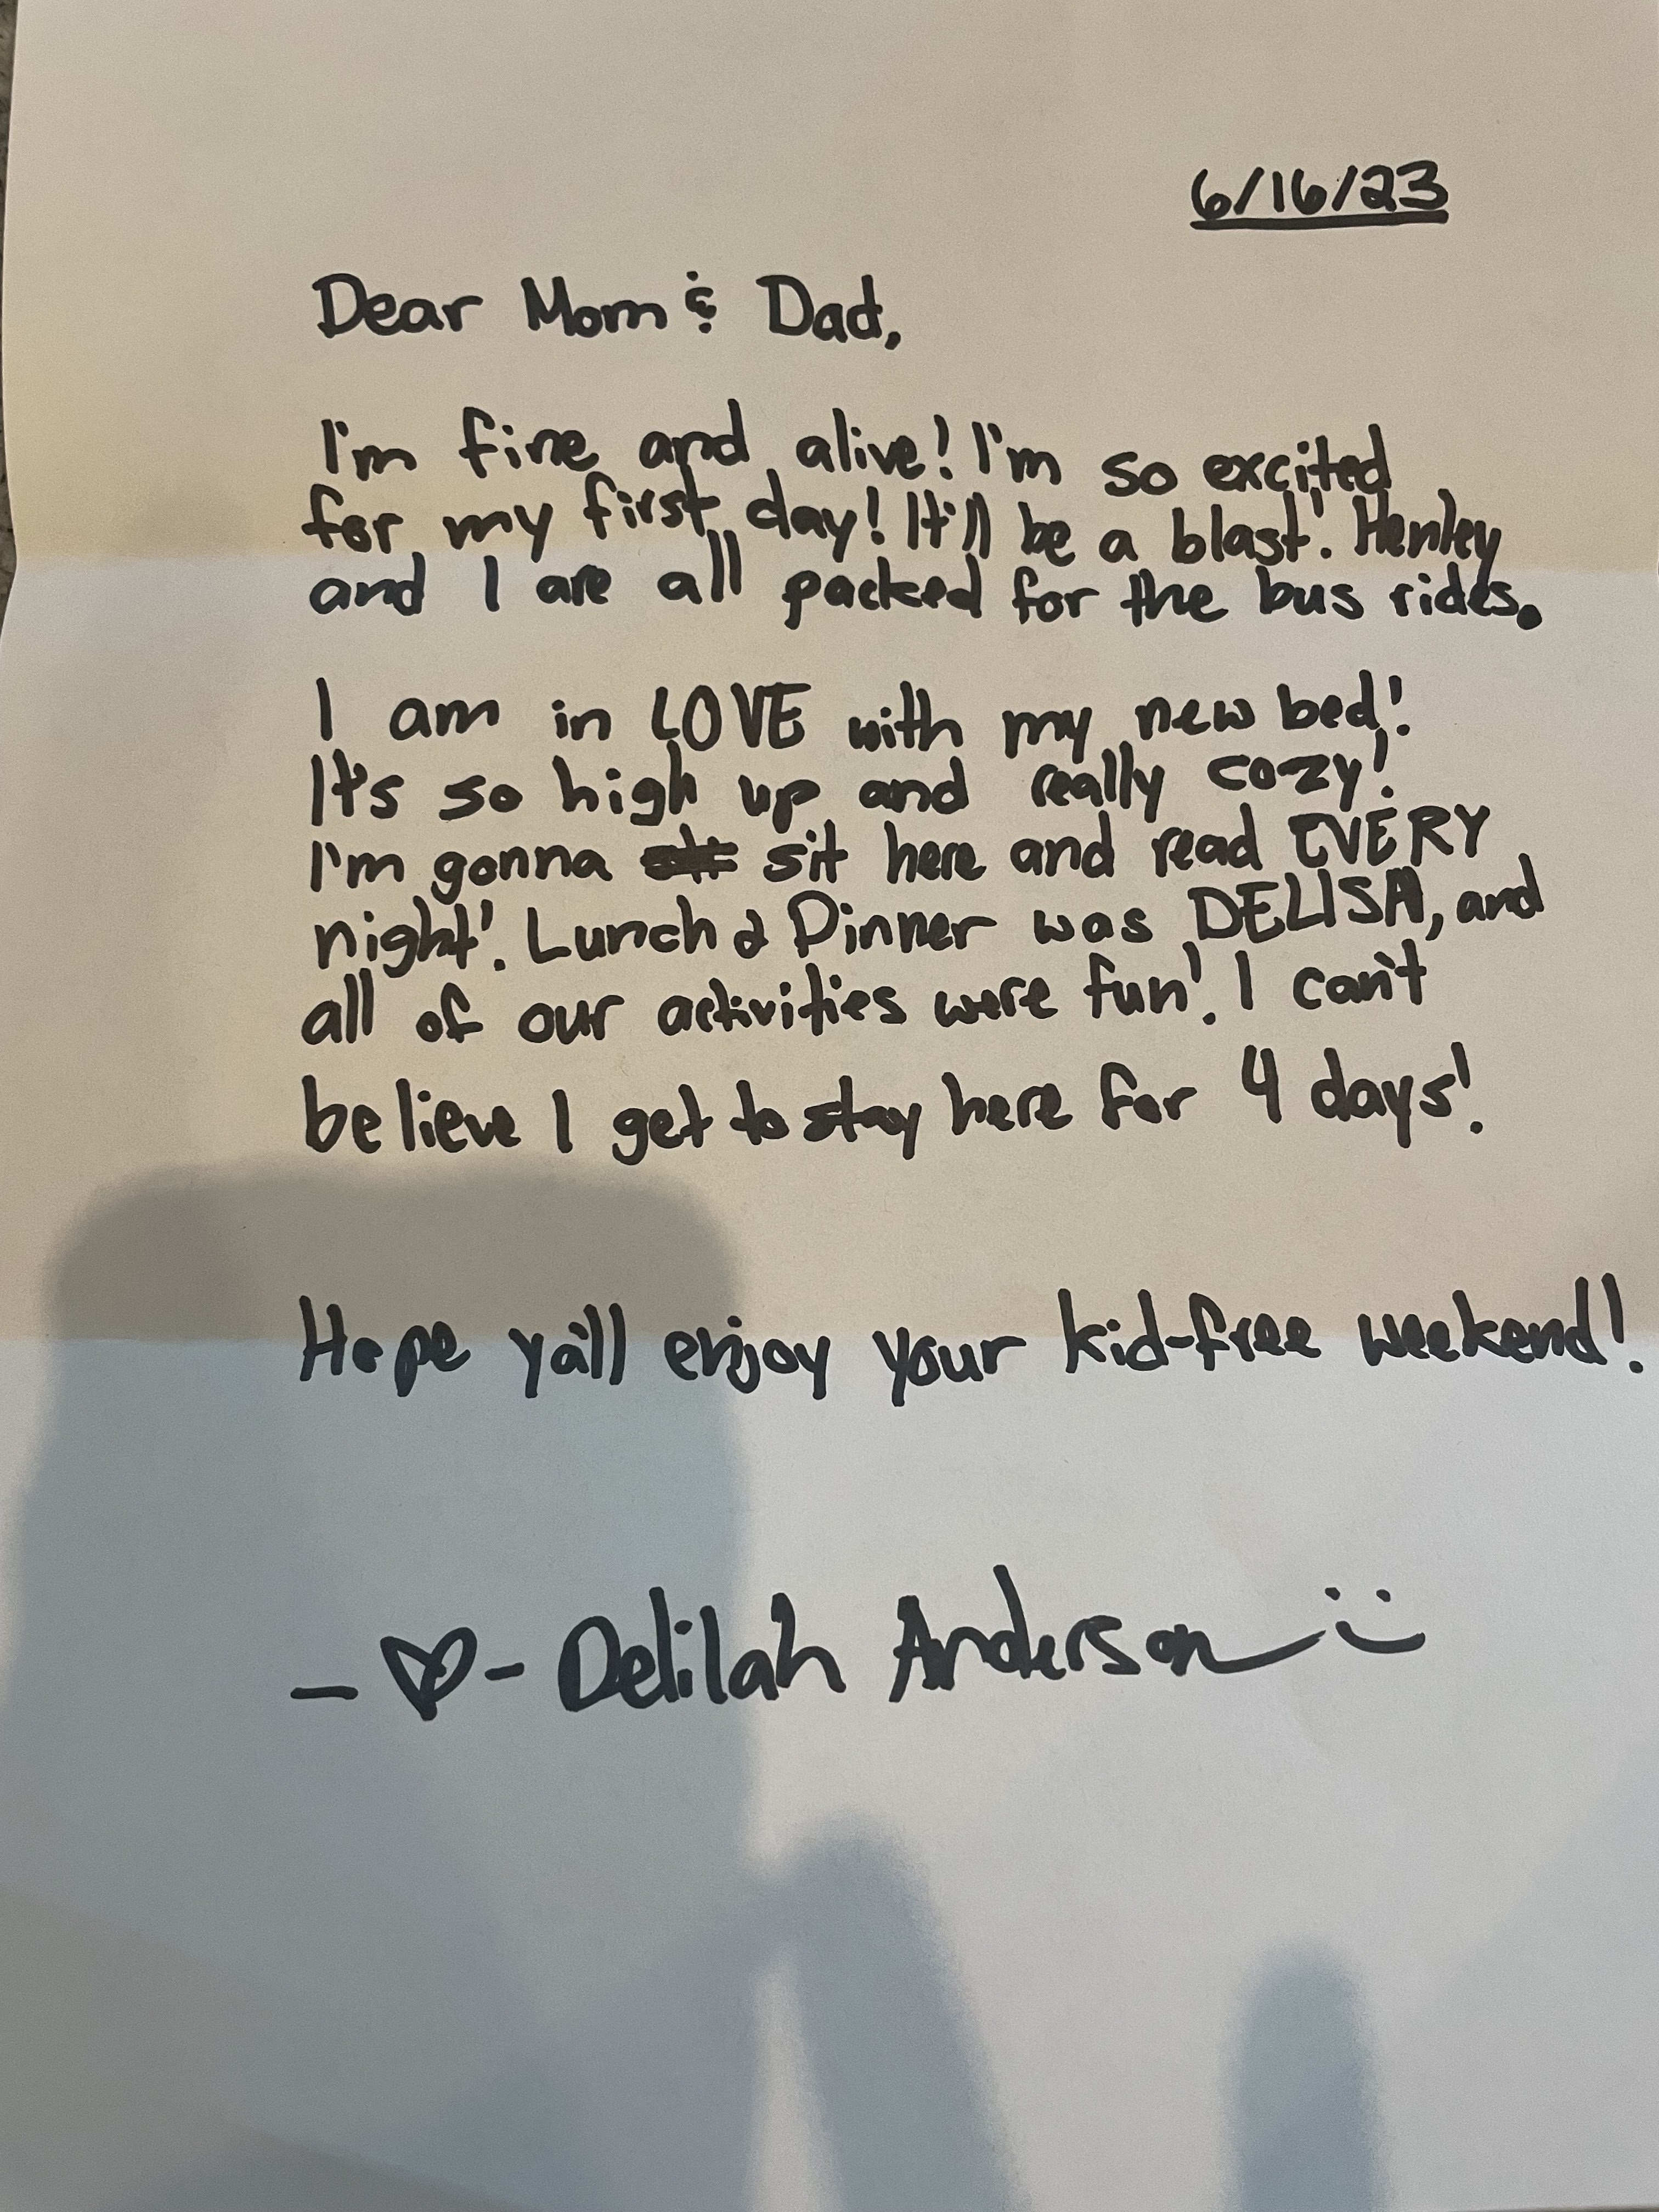 6/16/23
Dear Mom & Dad,
I'm fine and alive! I'm so excited
for my first day! It'll be a blast! Henley
and I are all packed for the bus rides.
I am in LOVE with my new bed!
It's so high up and really cozy!
I'm gonna sit here and read EVERY
night! Lunch & Dinner was DELISH, and
all of our activities were fun! I can't
believe I get to stay here for 4 days!
Hope ya'll enjoy your kid-free weekend!
-♡- Delilah Anderson :)